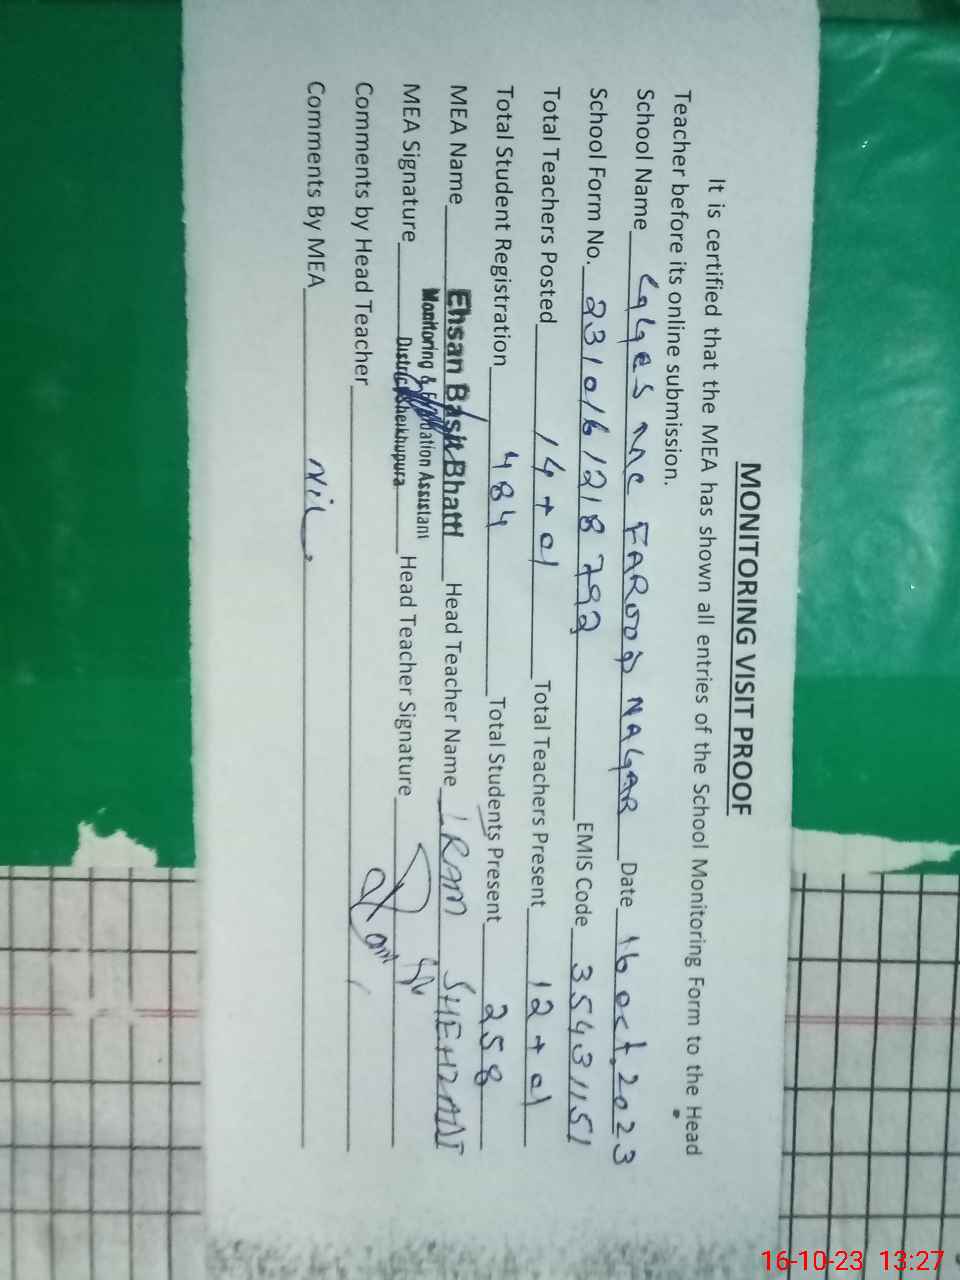 MONITORING VISIT PROOF
It is certified that the MEA has shown all entries of the School Monitoring Form to the Head
Teacher before its online submission.
School Name GGHS MC FAROOQ NAGAR Date 16 oct, 2023
School Form No. 231016121879 2 EMIS Code 35431151
Total Teachers Posted 14 + 01 Total Teachers Present 12 + 01
Total Student Registration 484 Total Students Present 258
MEA Name Ehsan Basit Bhatti Head Teacher Name IRAM SHEHZADI
Monitoring & Evaluation Assistant
MEA Signature District Sheikhupura Head Teacher Signature
Comments by Head Teacher
Comments By MEA Nil
16-10-23 13:27